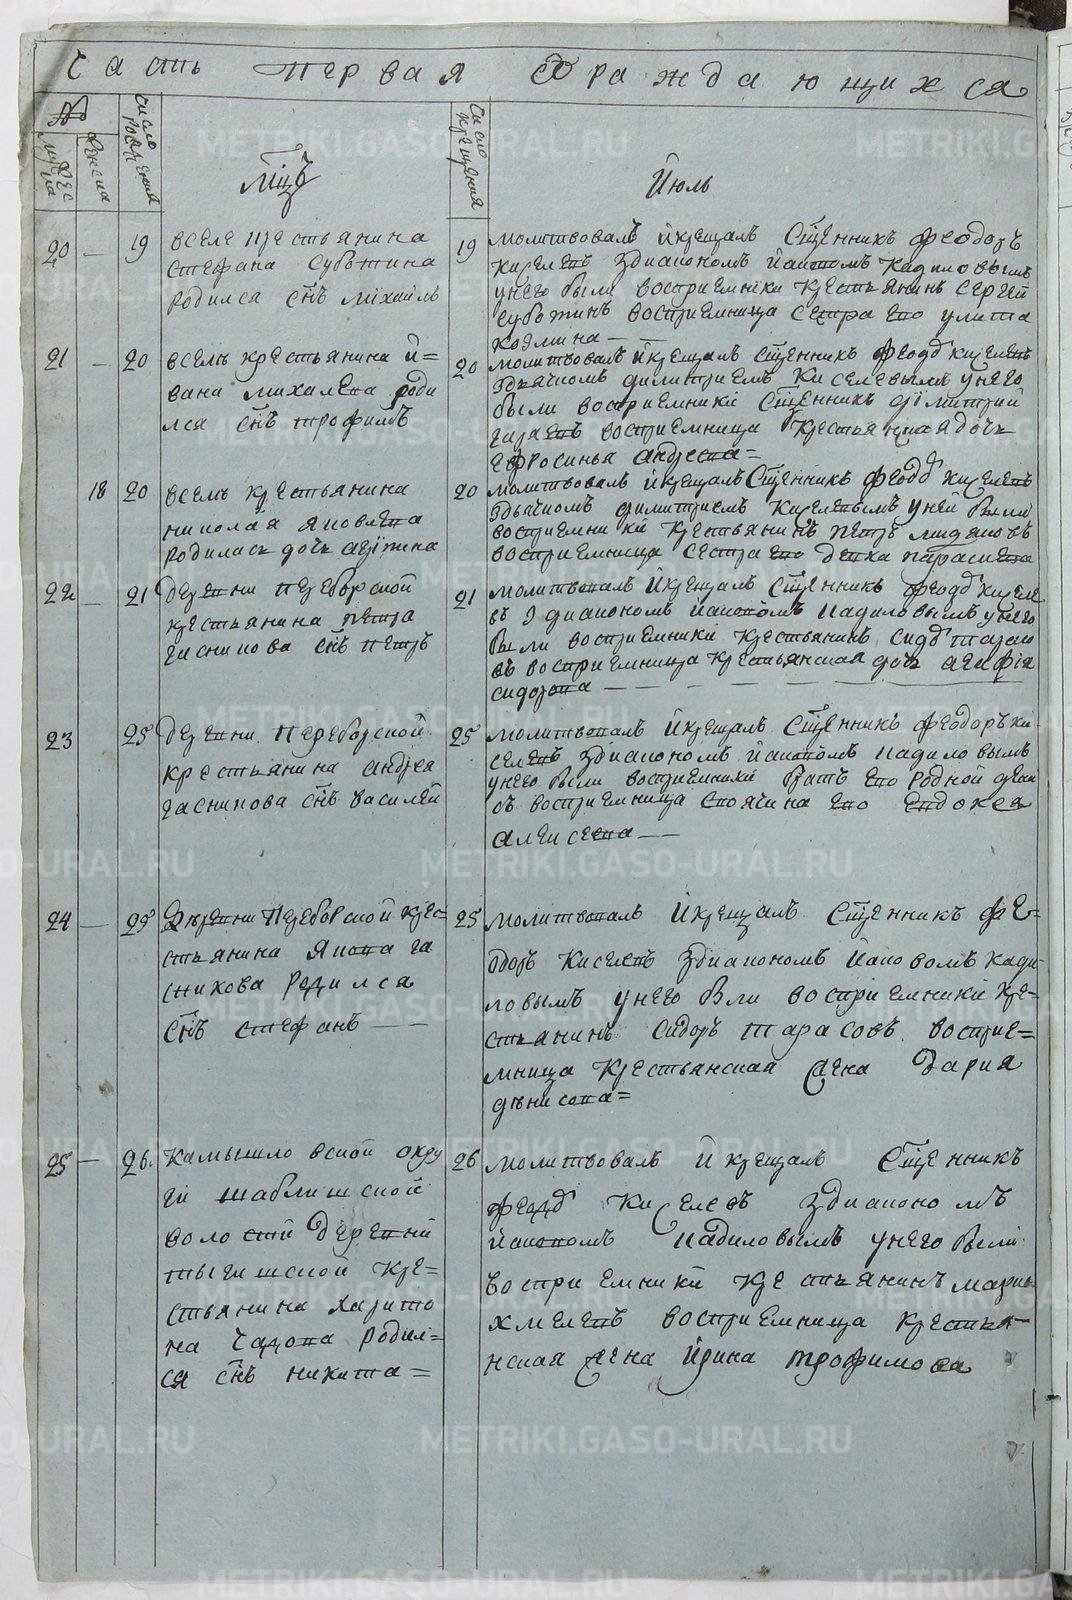 Часть первая о раждающихся
№
мужеска
женска
число рождения
число крещения
Мцъ
Июль
20 — 19
вселе крестьянина
Стефана Суботина
родился снъ михаилъ
19
молитвовалъ и крещалъ Сщенникъ феодоръ
киселевъ здиакономъ иаковомъ кадиловымъ
унего были восприемники крестьянинъ Сергей
суботинъ восприемница сестра его улита
козмина —
21 — 20
вселъ крестьянина и=
вана михалева роди
лся снъ трофимъ
20
молитвовалъ и крещалъ Сщенникъ феодоръ киселевъ
здьячкомъ димитрiемъ Киселевымъ унего
были восприемники Сщенникъ дiмитрий
восприемница крестьянская дочь
ефросинья андреева=
18 20
вселъ крестьянина
николая яковлева
родилась дочь
20
молитвовалъ и крещалъ Сщенникъ феодоръ киселевъ
здьячкомъ димитриемъ киселевымъ уней были
восприемники крестьянинъ петръ
восприемница сестра его девка параскева
22 — 21
деревни переборской
крестьянина петра
гасникова снъ петръ
21
молитвовалъ и крещалъ Сщенникъ феодоръ киселе
въ здиакономъ иаковомъ кадиловымъ унего
были восприемники крестьянинъ сидоръ тарасо
въ восприемница крестьянская дочь агафiя
сидорова — — — — —
23 25
деревни переборской
крестьянина андрея
гасникова снъ василей
25
молитвовалъ и крещалъ Сщенникъ феодоръ ки
селевъ здиакономъ иаковомъ кадиловымъ
унего были восприемники братъ его родной
восприемница своячина его евдокея
алексеева — —
24 — 25
деревни переборской крес=
стьянина якова га
сникова родился
снъ стефанъ — —
25
молитвовалъ и крещалъ Сщенникъ фе=
одоръ киселевъ здиакономъ иаковомъ кади
ловымъ унего бли восприемники кре=
стьянинъ сидоръ тарасовъ восприе=
мница крестьянская жена дария
денисова=
25 — 26
камышловской окру
ги шаблишской
волости деревни
тыгишской кре=
стьянина харито
на родил=
ся снъ никита=
26
молитвовалъ и крещалъ Сщенникъ
феодоръ киселевъ здиакономъ
иаковомъ кадиловымъ унего были
восприемники крестьянинъ
хмелевъ восприемница крестья
нская жена ирина трофимова
METRIKI.GASO-URAL.RU